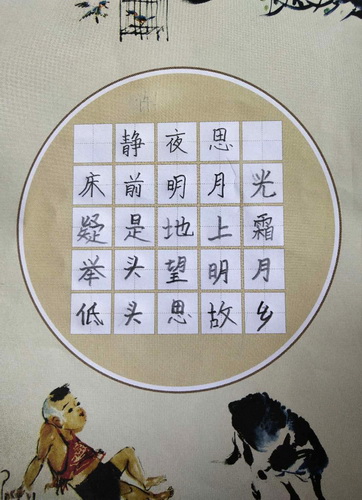 静夜思
床前明月光
疑是地上霜
举头望明月
低头思故乡